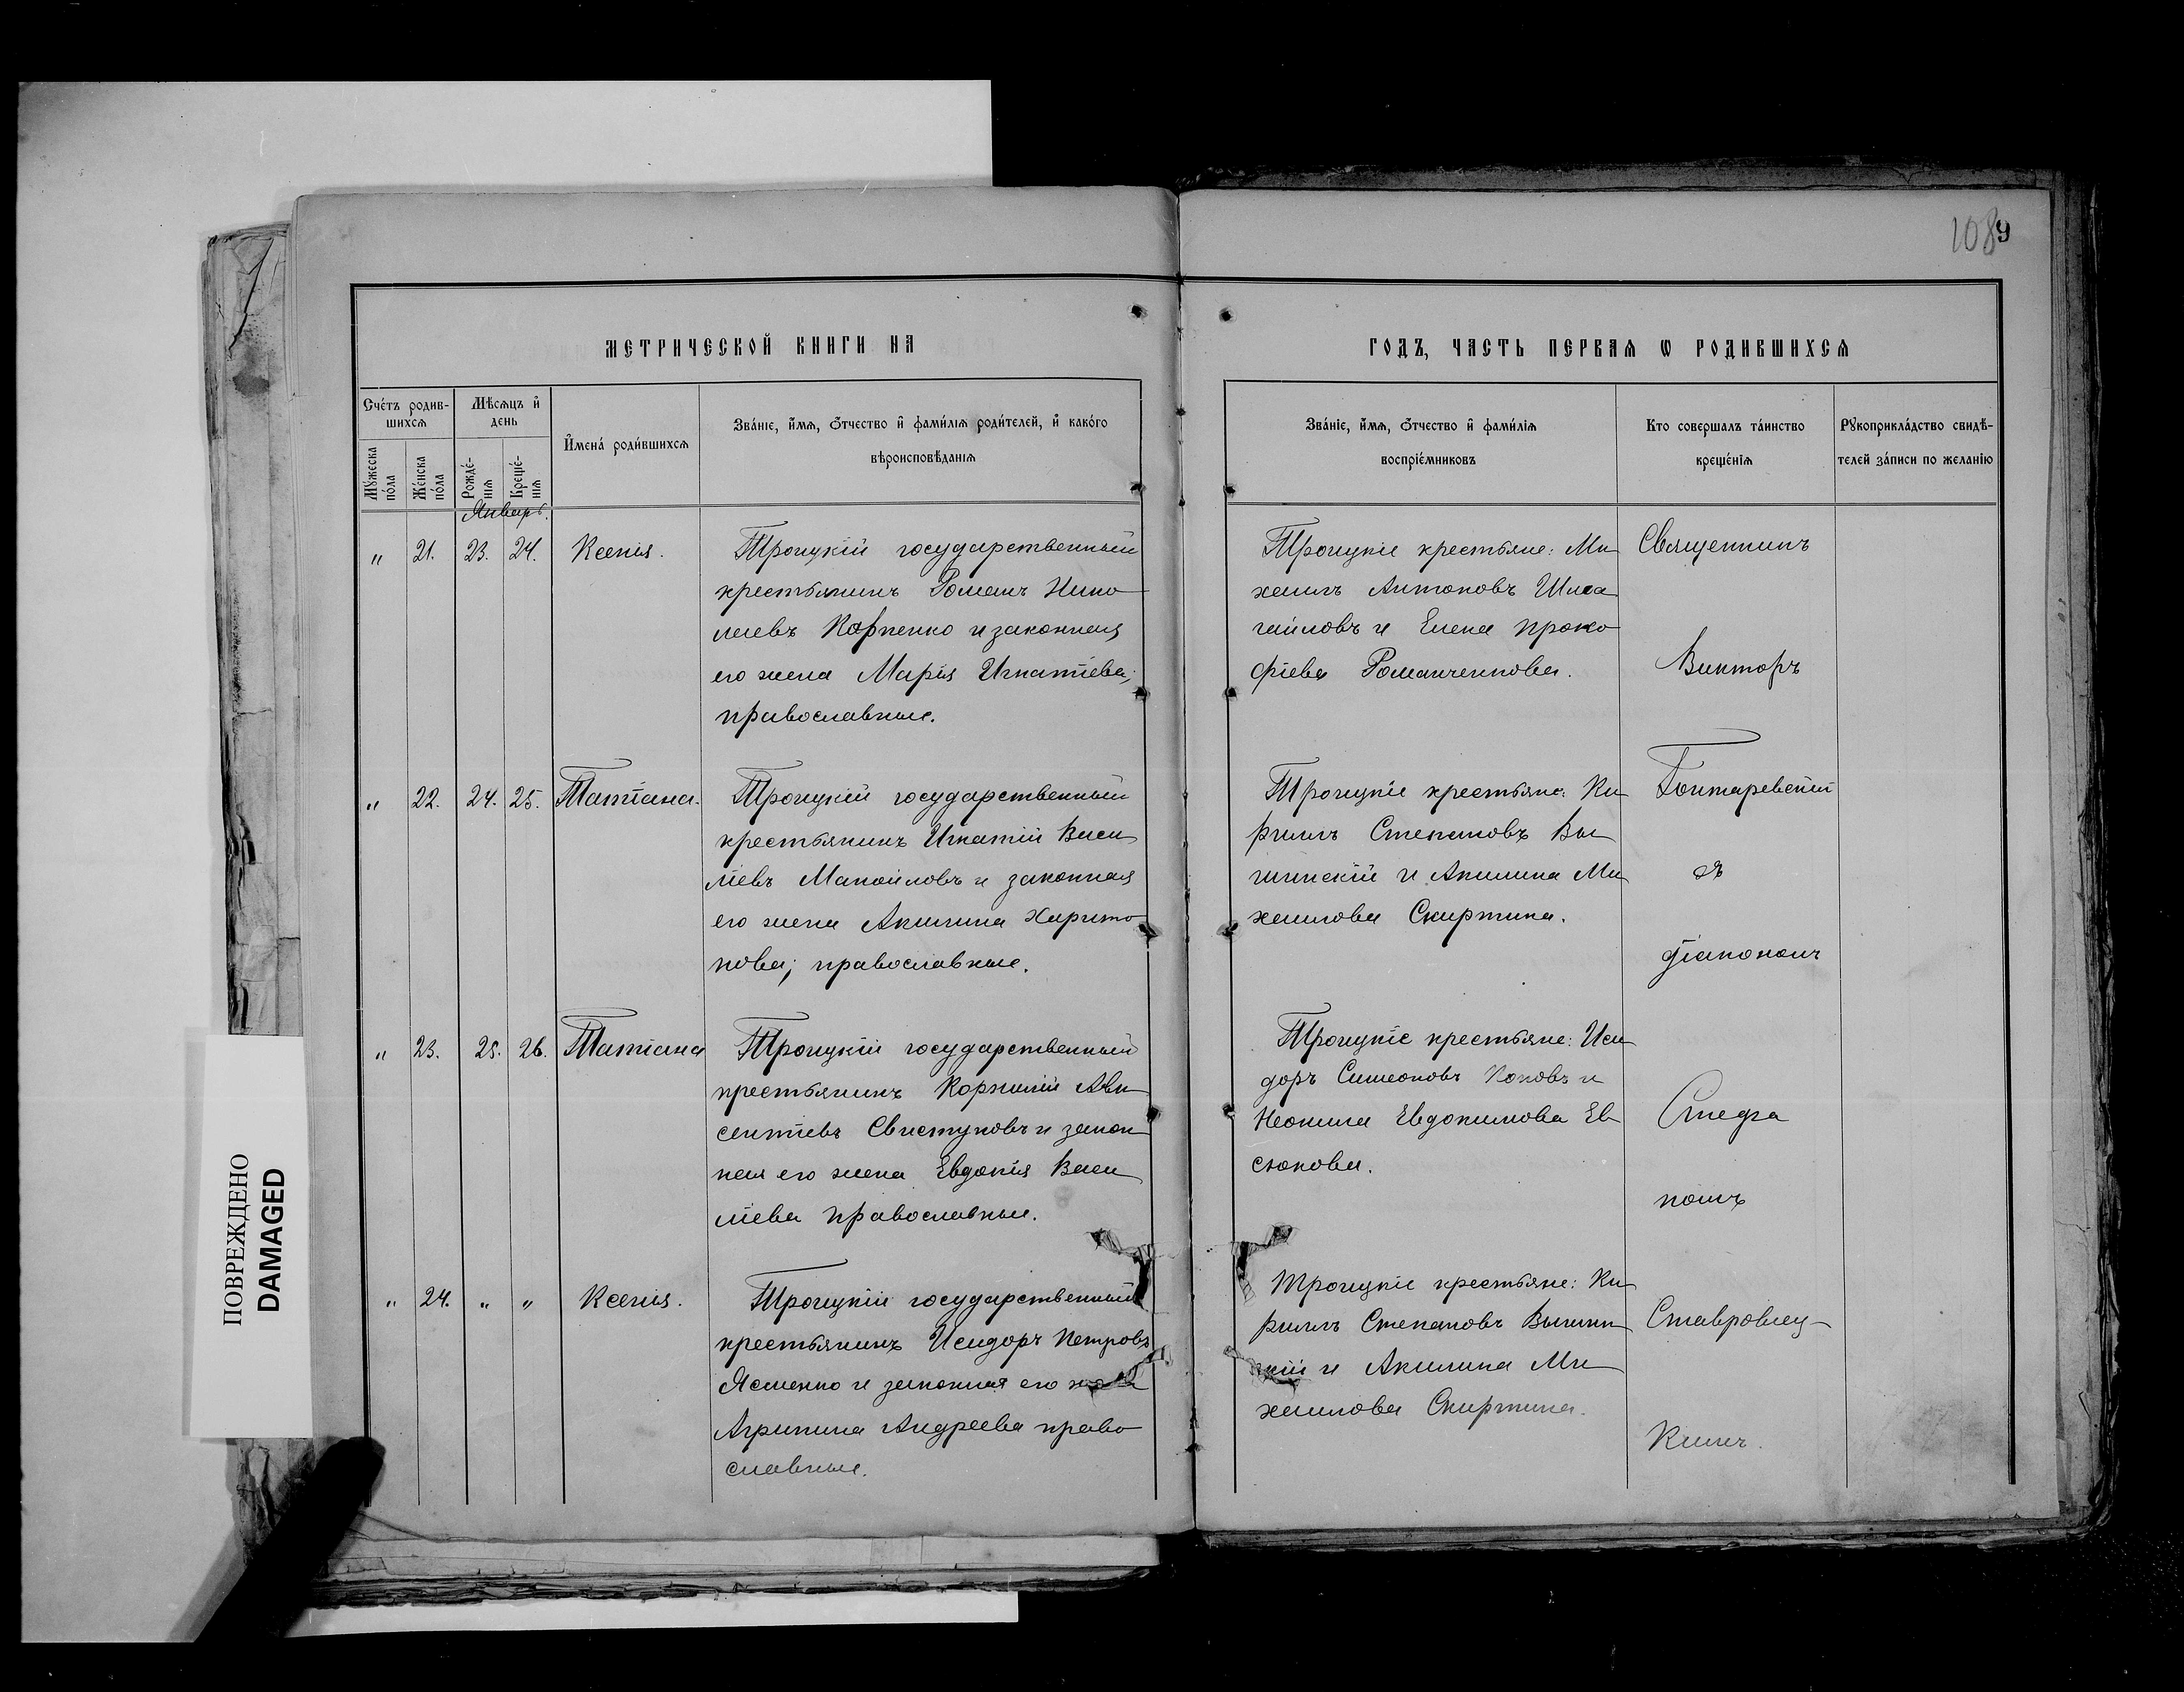 108 9
МЕТРИЧЕСКОЙ КНИГИ НА
ГОДЪ, ЧАСТЬ ПЕРВАѦ Ѡ РОДИВШИХСѦ
Счетъ родив-
шихсѧ
Мужеска
пола
Женска
пола
Мѣсѧцъ и
день
Рожде-
нїѧ
Креще-
нїѧ
Имена родившихсѧ
Званїе, имѧ, ѿчество и фамилїѧ родителей, и какого
вѣроисповѣданїѧ
Званїе, имѧ, ѿчество и фамилїѧ
воспрїемниковъ
Кто совершалъ таинство
крещенїѧ
Рꙋкоприкладство свидѣ-
телей записи по желанїю
Январь.
" 21. 23. 24. Ксенія.
Троицкій государственный
крестьянинъ Романъ Нико
лаевъ Карпенко и законная
его жена Марія Игнатіева;
православные.
Троицкіе крестьяне: Ми
хаилъ Антоновъ
и Елена Проко
фіева Романченкова.
" 22. 24. 25. Татіана.
Троицкій государственный
крестьянинъ Игнатій Васи
ліевъ Манойловъ и законная
его жена Акилина Харито
нова; православные.
Троицкіе крестьяне: Ки
риллъ Степановъ Вы
шинскій и Акилина Ми
хаилова Скиртина.
" 23. 25. 26. Татіана
Троицкій государственный
крестьянинъ Корнилій Авк
сентіевъ Свистуновъ и закон
ная его жена Евдокія Васи
ліева православные.
Троицкіе крестьяне: Иси
доръ Симеоновъ Коковъ и
Неонила Евдокимова Ев
сюкова.
" 24. " " Ксенія.
Троицкій государственный
крестьянинъ Исидоръ Петровъ
Ясменко и законная его жена
Агрипина Андреева право
славные.
Троицкіе крестьяне: Ки
риллъ Степановъ Вышин
скій и Акилина Ми
хаилова Скиртина.
Священникъ
Викторъ
Гонтаревскій
съ
діакономъ
Ставровец-
кимъ.
ПОВРЕЖДЕНО
DAMAGED